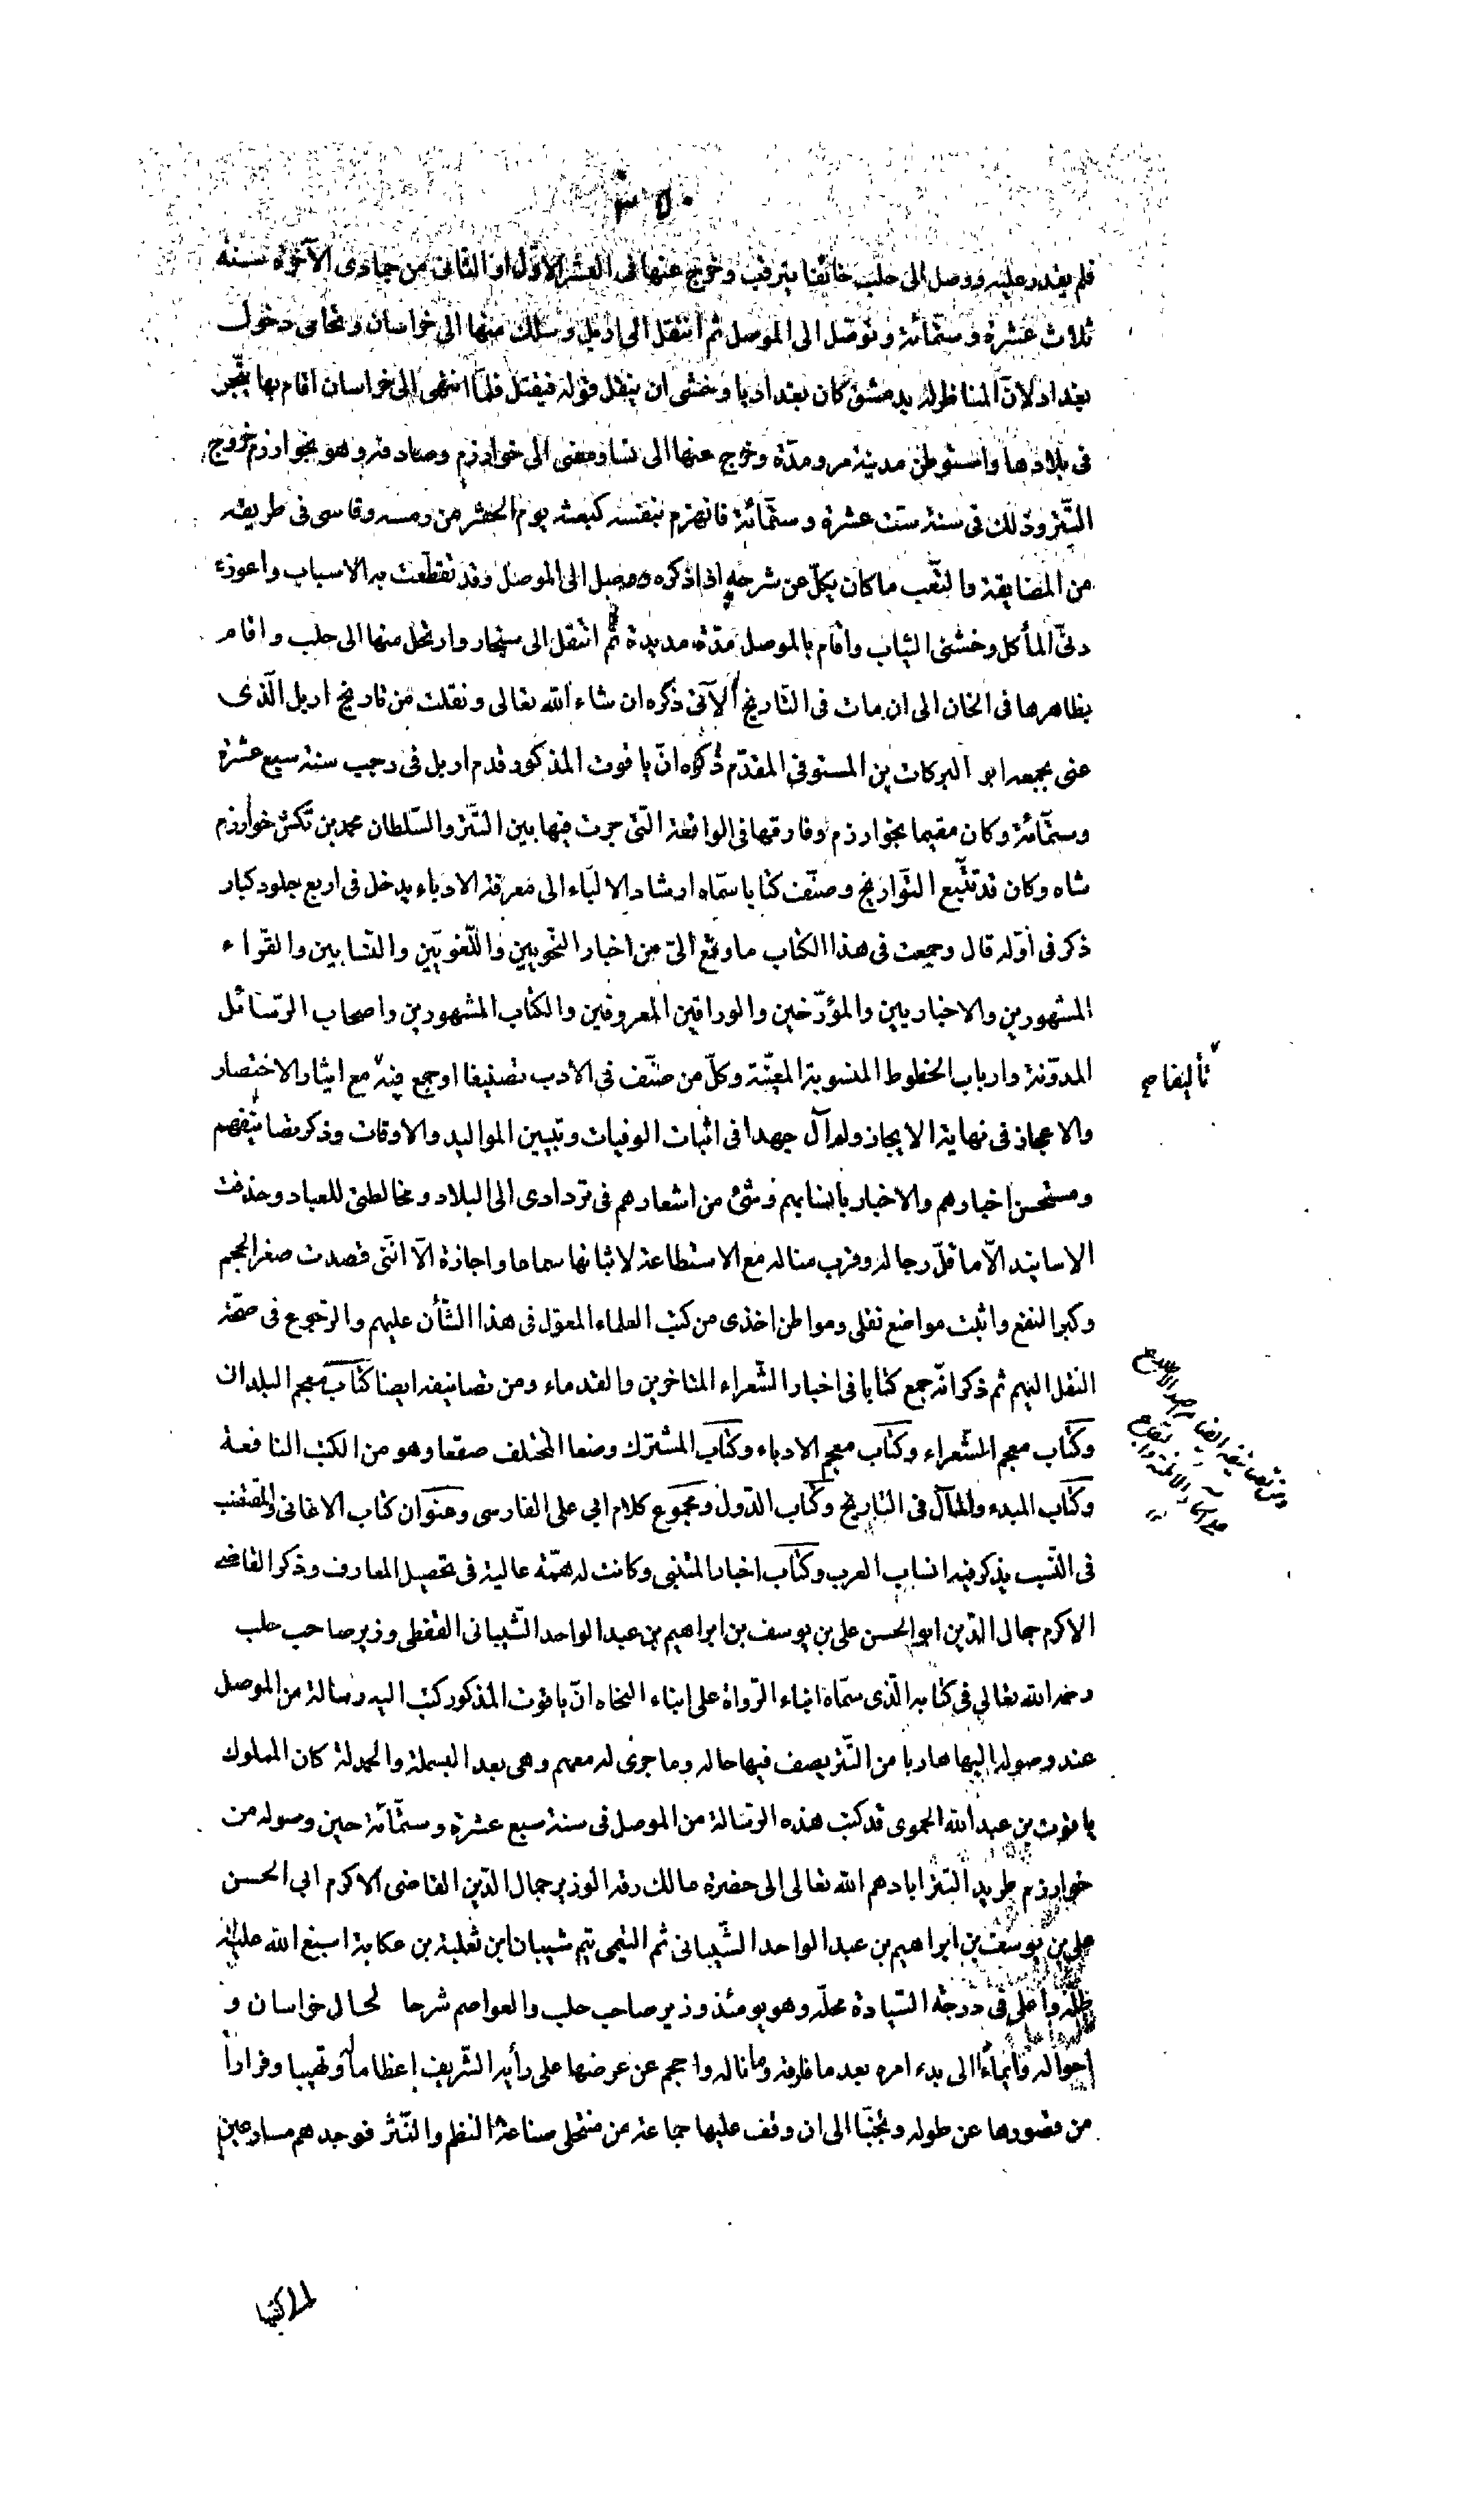 ٣٥٠
فلم يقدر عليه ووصل الى حلب خائفا يترقب وخرج عنها فى العشر الاوّل او الثانى من جمادى الآخرة سنة
ثلاث عشرة وستّمائة وتوصّل الى الموصل ثم انتقل الى اربل وسلك منها الى خراسان وتحامى دخول
بغداد لانّ المناظر له بدمشق كان بغداديا وخشى ان ينقل قوله فيقتل فلمّا انتهى الى خراسان اقام بها يتّجر
فى بلادها واستوطن مدينة مرو مدّة وخرج عنها الى نسا ومضى الى خوارزم وصادفه وهو بخوارزم خروج
التّتر وذلك فى سنة ستّ عشرة وستّمائة فانهزم بنفسه كبعثه يوم الحشر من رمسه وقاسى فى طريقه
من المضايقة والتّعب ما كان يكلّ عن شرحه اذا ذكره ووصل الى الموصل وقد تقطّعت به الاسباب واعوذه
دنىّ المأكل وخشنى الثياب واقام بالموصل مدّة مديدة ثم انتقل الى سنجار وارتحل منها الى حلب واقام
بظاهرها فى الخان الى ان مات فى التّاريخ الآتى ذكره ان شاء الله تعالى ونقلت من تاريخ اربل الّذى
عنى بجمعه ابو البركات بن المستوفى المقدّم ذكره انّ ياقوت المذكور قدم اربل فى رجب سنة سبع عشرة
وستّمائة وكان مقيما بخوارزم وفارقها فى الواقعة التى جرت فيها بين التّتر والسّلطان محمد بن تكش خوارزم
شاه وكان قد تتّبع التّواريخ وصنّف كتابا سمّاه ارشاد الالبّاء الى معرفة الادباء يدخل فى اربع جلود كبار
ذكر فى اوّله قال وجمعت فى هذا الكتاب ما وقع الىّ من اخبار النّحويين واللّغويّين والنسابين والقرّاء
المشهورين والاخباريين والمؤرّخين والوراقين المعروفين والكتاب المشهورين واصحاب الرّسائل
المدوّنة وارباب الخطوط المنسوبة المعيّنة وكلّ من صنّف فى الأدب تصنيفا او جمع فيه مع ايثار الاختصار
تأليفا صح
والاعجاز فى نهاية الايجاز ولم آل جهدا فى اثبات الوفيات وتبيين المواليد والاوقات وذكر تصانيفهم
ومستحسن اخبارهم والاخبار بانسابهم وشئ من اشعارهم فى تردادى الى البلاد ومخالطتى للعباد وحذفت
الاسانيد الّا ما قلّ رجاله وقرب مناله مع الاستطاعة لاثباتها سماعا واجازة الّا انّنى قصدت صغر الحجم
وكبر النفع واثبتّ مواضع نقلى ومواطن اخذى من كتب العلماء المعوّل فى هذا الشأن عليهم والرّجوع فى صحّة
النقل اليهم ثم ذكر انّه جمع كتابا فى اخبار الشّعراء المتاخرين والقدماء ومن تصانيفه ايضا كتاب معجم البلدان
وكتاب معجم الشّعراء وكتاب معجم الادباء وكتاب المشترك وضعا المختلف صقعا وهو من الكتب النافعة
وكتاب المبدء والمآل فى التاريخ وكتاب الدّول ومجموع كلام ابي على الفارسى وعنوان كتاب الاغانى والمقتضب
فى النّسب يذكر فيه انساب العرب وكتاب اخبار المتنبى وكانت له همّة عالية فى تحصيل المعارف وذكر القاضى
الاكرم جمال الدّين ابو الحسن على بن يوسف بن ابراهيم بن عبد الواحد الشّيبانى القفطى وزير صاحب حلب
رحمه الله تعالى فى كتابه الّذى سمّاه انباء الرّواة على ابناء النحاه انّ ياقوت المذكور كتب اليه رسالة من الموصل
عند وصوله اليها هاربا من التّتر يصف فيها حاله وما جرى له معهم وهى بعد البسملة والحمدلة كان المملوك
ياقوت بن عبد الله الحموى قد كتب هذه الرّسالة من الموصل فى سنة سبع عشرة وستّمائة حين وصوله من
خوارزم طريد التّتر ابادهم الله تعالى الى حضرة مالك رقه الوزير جمال الدّين القاضى الاكرم ابي الحسن
على بن يوسف بن ابراهيم بن عبد الواحد الشّيبانى ثم التيمى تيم شيبان ابن ثعلبة بن عكابة اسبغ الله عليه
ظلّه واعلى فى درجة السّيادة محلّه وهو يومئذ وزير صاحب حلب والعواصم شرحا لحال خراسان و
احواله وايماءً الى بدء امره بعد ما فارقه وما ناله واحجم عن عرضها على رأيه الشّريف اعظاما وتهيبا وفرارا
من قصورها عن طوله وتجنّبا الى ان وقف عليها جماعة من منتحلى صناعة النظم والنّثر فوجدهم مسارعين